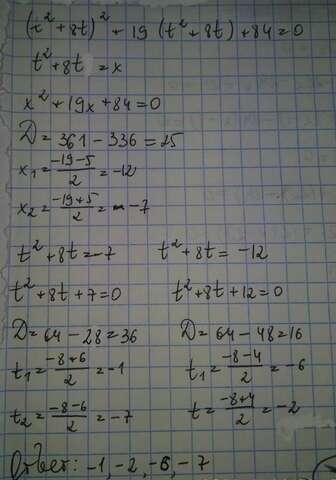 (t²+8t)²+19(t²+8t)+84=0
t²+8t=x
x²+19x+84=0
D=361-336=25
x₁=(-19-5)/2=-12
x₂=(-19+5)/2=-7
t²+8t=-7 t²+8t=-12
t²+8t+7=0 t²+8t+12=0
D=64-28=36 D=64-48=16
t₁=(-8+6)/2=-1 t₁=(-8-4)/2=-6
t₂=(-8-6)/2=-7 t=(-8+4)/2=-2
Ответ: -1, -2, -6, -7